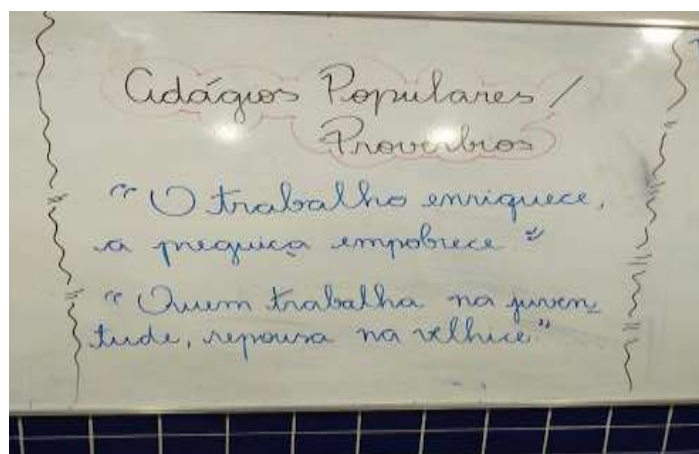 Adágios Populares /
Provérbios
"O trabalho enriquece,
a preguiça empobrece"
"Quem trabalha na juven-
tude, repousa na velhice."